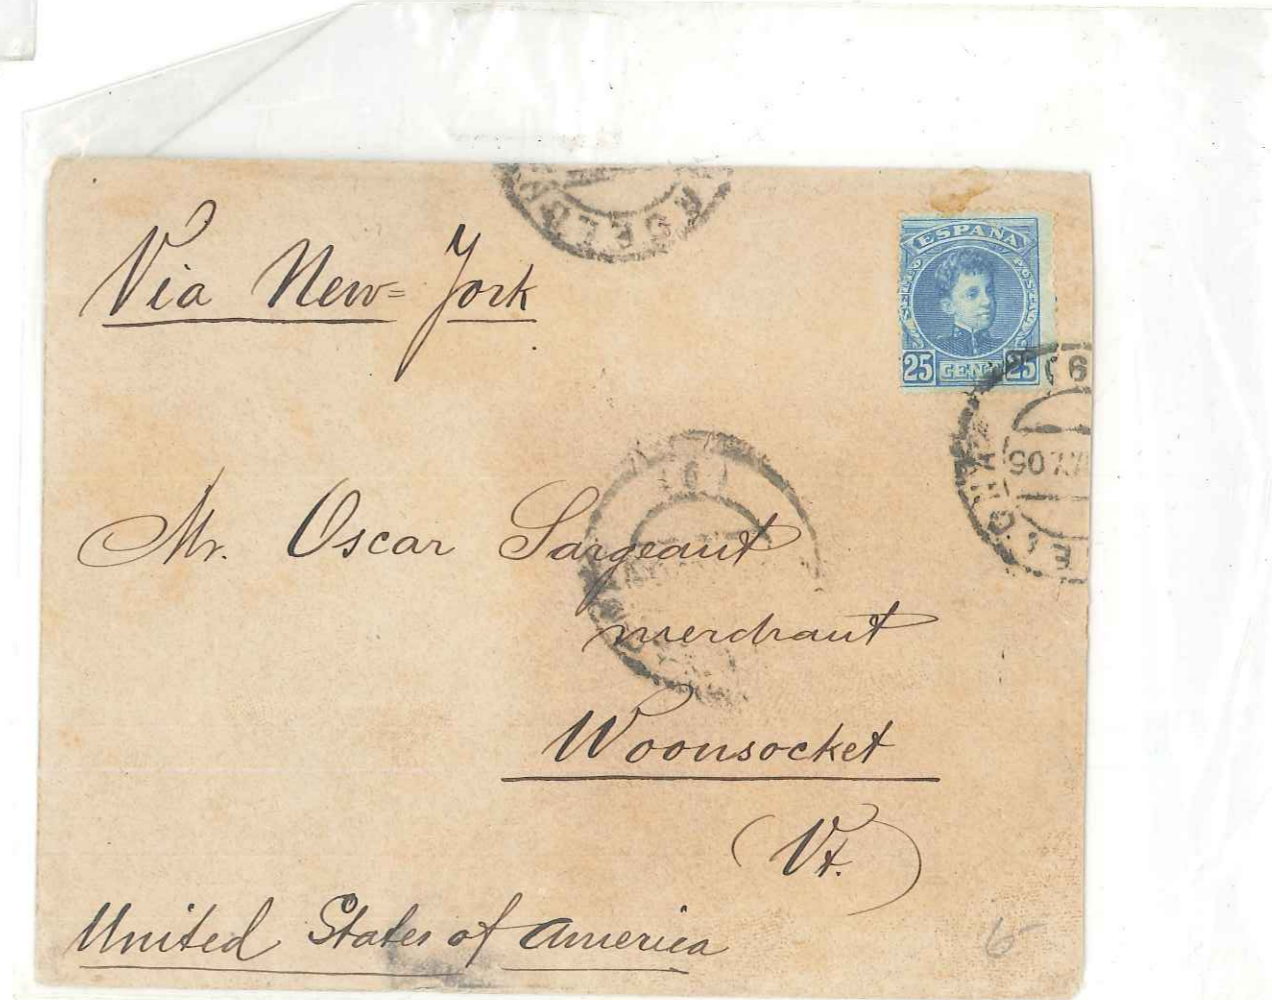 Via New=York
ESPAÑA
25 CENT 25
(6
Mr. Oscar Sargeant
(6)
merchant
Woonsocket
(Vt.)
United States of America
6